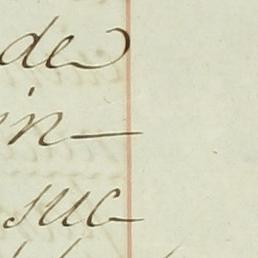 de
in-
suc-